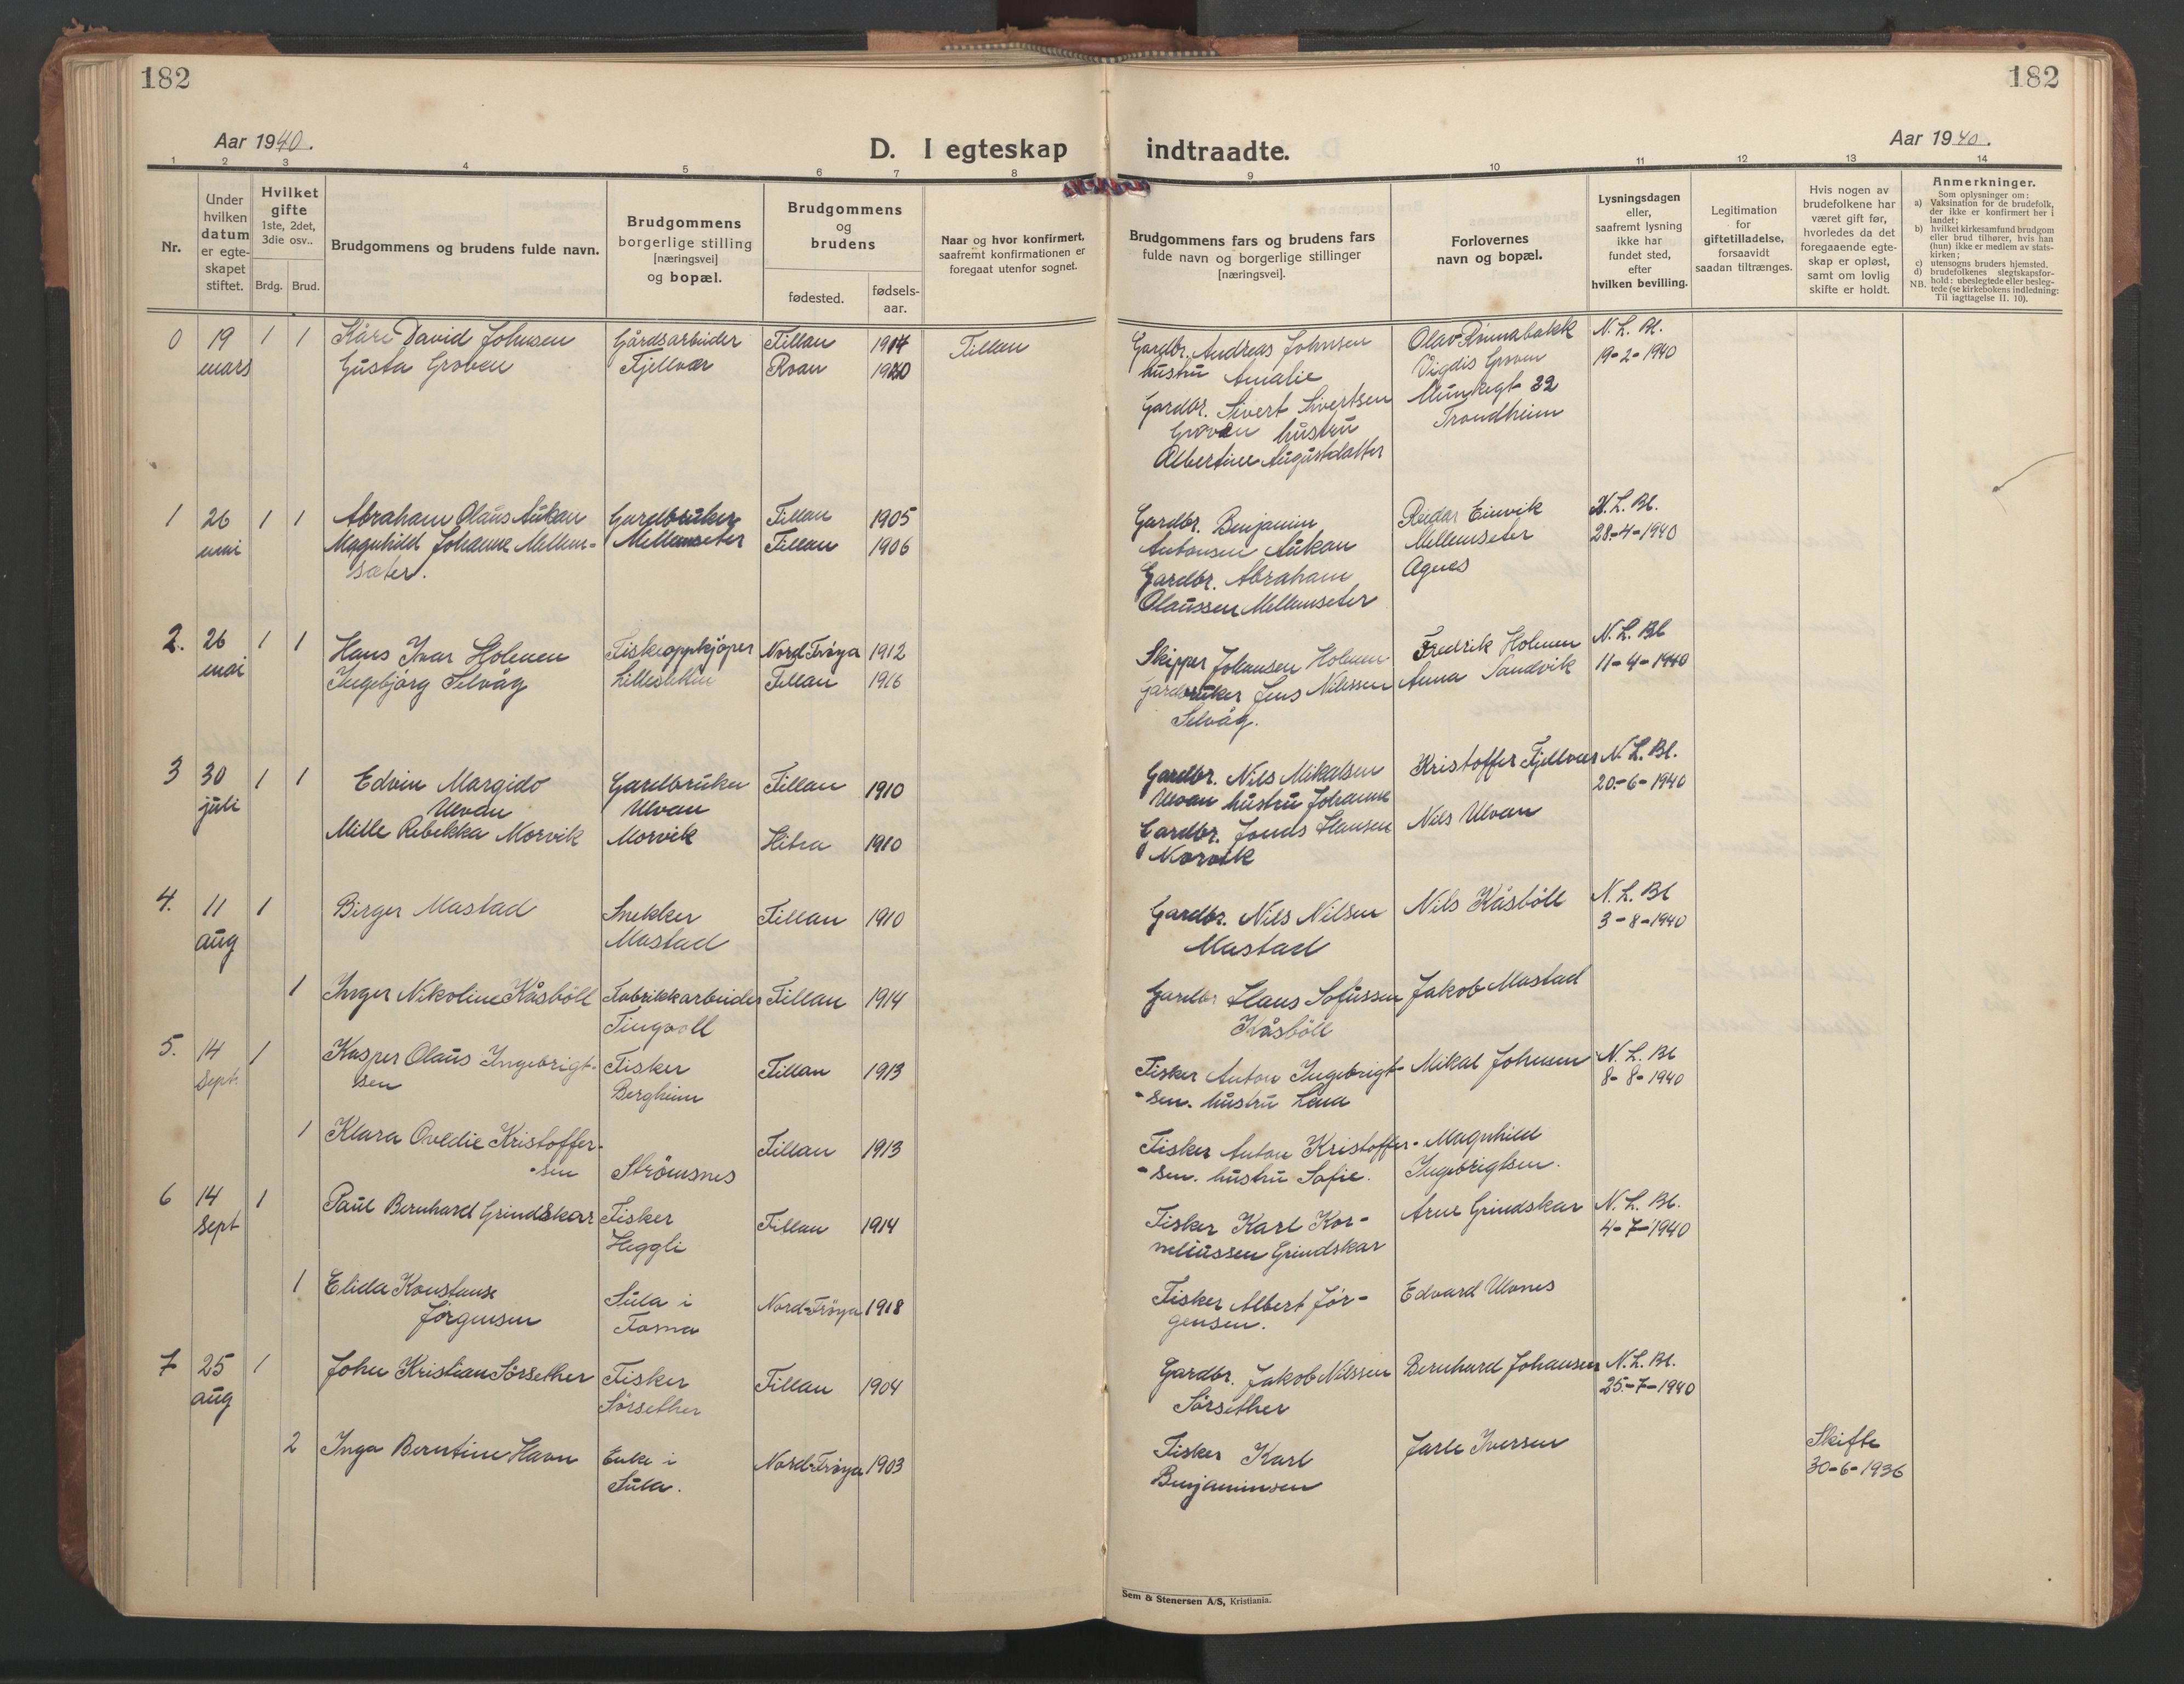 182
182
Aar 1940.
D. I egteskap indtraadte.
Aar 1940.
1 2 3 4 5 6 7 8 9 10 11 12 13 14
Nr.
Under hvilken datum er egteskapet stiftet.
Hvilket gifte 1ste, 2det, 3die osv..
Brdg. Brud.
Brudgommens og brudens fulde navn.
Brudgommens borgerlige stilling [næringsvei] og bopæl.
Brudgommens og brudens
fødested.
fødsels-aar.
Naar og hvor konfirmert, saafremt konfirmationen er foregaat utenfor sognet.
Brudgommens fars og brudens fars fulde navn og borgerlige stillinger [næringsvei].
Forlovernes navn og bopæl.
Lysningsdagen eller, saafremt lysning ikke har fundet sted, efter hvilken bevilling.
Legitimation for giftetilladelse, forsaavidt saadan tiltrænges.
Hvis nogen av brudefolkene har været gift før, hvorledes da det foregaaende egteskap er opløst, samt om lovlig skifte er holdt.
Anmerkninger.
Som oplysninger om:
a) Vaksination for de brudefolk, der ikke er konfirmert her i landet;
b) hvilket kirkesamfund brudgom eller brud tilhører, hvis han (hun) ikke er medlem av statskirken;
c) utensogns bruders hjemsted.
d) brudefolkenes slegtskapsforhold: ubeslegtede eller beslegtede (se kirkebokens indledning: Til iagttagelse II. 10).
NB.
0 19 1 1 Kåre David Johnsen Gårdsarbeider Fillan 1914 Fillan Gardbr. Andreas Johnsen Olav Rönnabakk N. L. Bl.
mars Gusta Groven Fjellvær Roan 1910 hustru Amalie Vigdis Groven 19-2-1940
Gardbr. Sivert Sivertsen Munkegt 22
Groven hustru Trondheim
Albertine Augustdatter
1 26 1 1 Abraham Olaus Aukan Gardbruker Fillan 1905 Gardbr. Benjamin Reidar Einvik N. L. Bl.
mai Magnhild Johanne Mellem- Mellemseter Fillan 1906 Antonsen Aukan Mellemseter 28-4-1940
sæter. Gardbr. Abraham Agnes
Olaussen Mellemseter
2. 26 1 1 Hans Ivar Holmen Fiskeoppkjöper Nord Fröya 1912 Skipper Johansen Holmen Fredrik Holmen N. L. Bl
mai Ingebjörg Selvåg Fillan 1916 Gardbruker Jens Nilssen Anna Sandvik 11-4-1940
Selvåg.
3 30 1 1 Edvin Margido Gardbruker Fillan 1910 Gardbr. Nils Mikalsen Kristoffer Fjellvær N. L. Bl.
juli Ulvan Ulvan Ulvan hustru Johanne 20-6-1940
Mille Rebekka Morvik Morvik Hitra 1910 Gardbr. Jonas Hansen Nils Ulvan
Morvik
4. 11 1 Birger Mastad Snekker Fillan 1910 Gardbr. Nils Nilsen Nils Kåsböll N. L. Bl
aug Mastad Mastad 3-8-1940
1 Inger Nikoline Kåsböll Fabrikkarbeider Fillan 1914 Gardbr Hans Sofussen Jakob Mastad
Tingvoll Kåsböll
5. 14 1 Kasper Olaus Ingebrigt- Fisker Fillan 1913 Fisker Anton Ingebrigt- Mikal Johnsen N. L. Bl
Sept. sen Bergheim -sen. hustru Lena 8-8-1940
1 Klara Ovedie Kristoffer- Fillan 1913 Fisker Anton Kristoffer- Magnhild
-sen Strömsnes -sen. hustru Sofie. Ingebrigtsen.
6 14 1 Paul Bernhard Grindskar Fisker Fillan 1914 Fisker Karl Kor- Arne Grindskar N. L. Bl.
Sept Heggli neliussen Grindskar 4-7-1940
1 Elida Konstanse Sula i Nord-Fröya 1918 Fisker Albert Jör- Edvard Ulvnes
Jörgensen Fosna gensen.
7 25 1 John Kristian Sörsether Fisker Fillan 1904 Gardbr. Jakob Nilssen Bernhard Johansen N. L. Bl.
aug Sörsether Sörsether 25-7-1940
2 Inga Berntine Havn Enke i Nord-Fröya 1903 Fisker Karl Jarle Iversen Skifte
Sula. Benjaminsen 30-6-1936
Sem & Stenersen A/S, Kristiania.